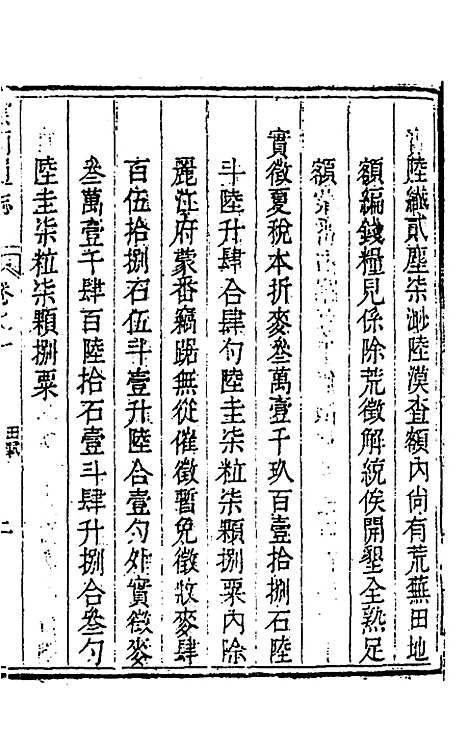 陸纖貳塵柒渺陸漠查額內尚有荒蕪田地
額編錢糧見係除荒徵解統俟開墾全熟足
額
實徵夏稅本折麥叁萬壹千玖百壹拾捌石陸
斗陸升肆合肆勺陸圭柒粒柒顆捌粟內除
麗江府蒙番竊踞無從催徵暫免徵收麥肆
百伍拾捌石伍斗壹升陸合壹勺外實徵麥
叁萬壹千肆百陸拾石壹斗肆升捌合叁勺
陸圭柒粒柒顆捌粟
通志
卷之
田賦
二